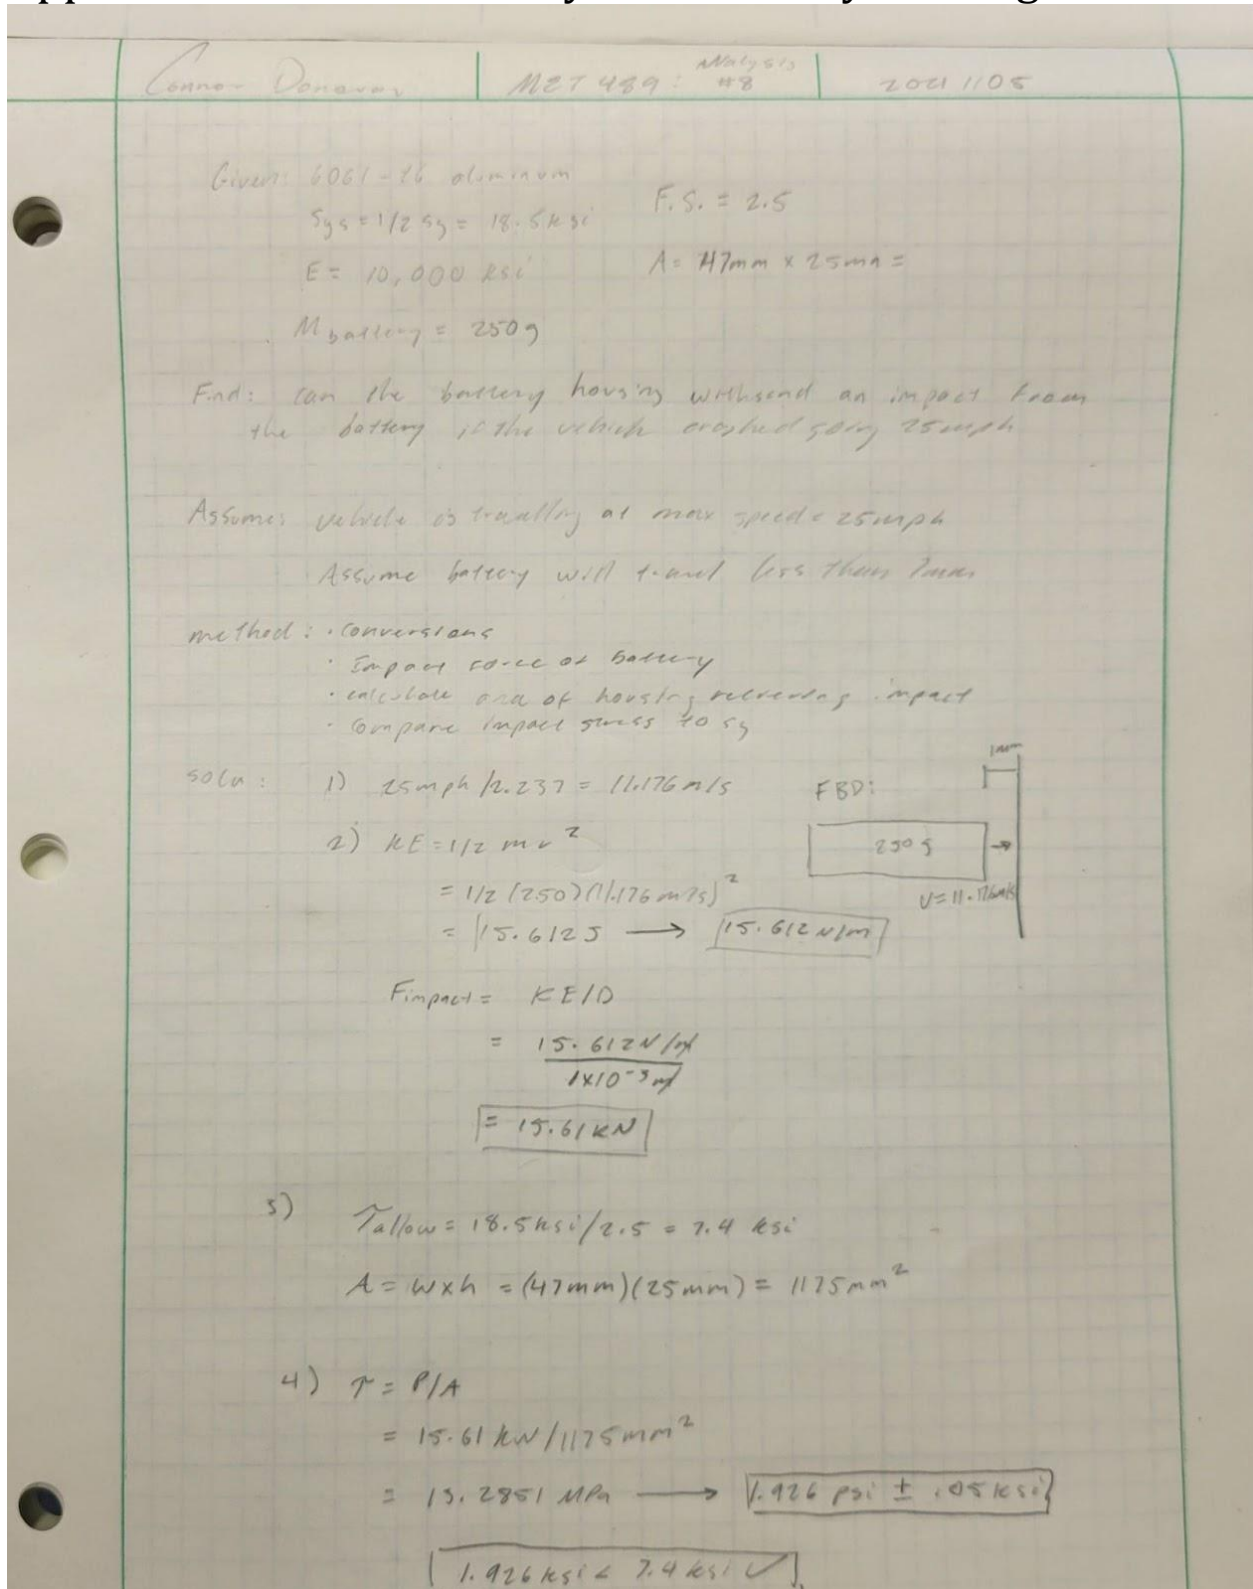 Connor Donovan MET 489: Analysis #8 20211105
Given: 6061-T6 aluminum
Sys = 1/2 sy = 18.5 ksi F.S. = 2.5
E = 10,000 ksi A = 47mm x 25mm =
Mbattery = 250g
Find: can the battery housing withsand an impact from
the battery if the vehicle crashed going 25mph
Assume: vehicle is travelling at max speed = 25mph
Assume battery will travel less than 1mm
method: • Conversions
• Impact force of battery
• calculate area of housing recieving impact
• Compare impact stress to sy
1mm
soln: 1) 25mph/2.237 = 11.176 m/s FBD:
2) KE = 1/2 mv²
250g
= 1/2 (250)(11.176 m/s)² V = 11.176m/s
= 15.612 J → 15.612 N/m
Fimpact = KE/D
= 15.612 N/m
1x10⁻³ m
= 15.61 KN
3) τallow = 18.5ksi/2.5 = 7.4 ksi
A = w x h = (47mm)(25mm) = 1175mm²
4) τ = P/A
= 15.61 kN/1175mm²
= 13.2851 MPa → 1.926 psi ± .05 ksi
1.926 ksi < 7.4 ksi ✓